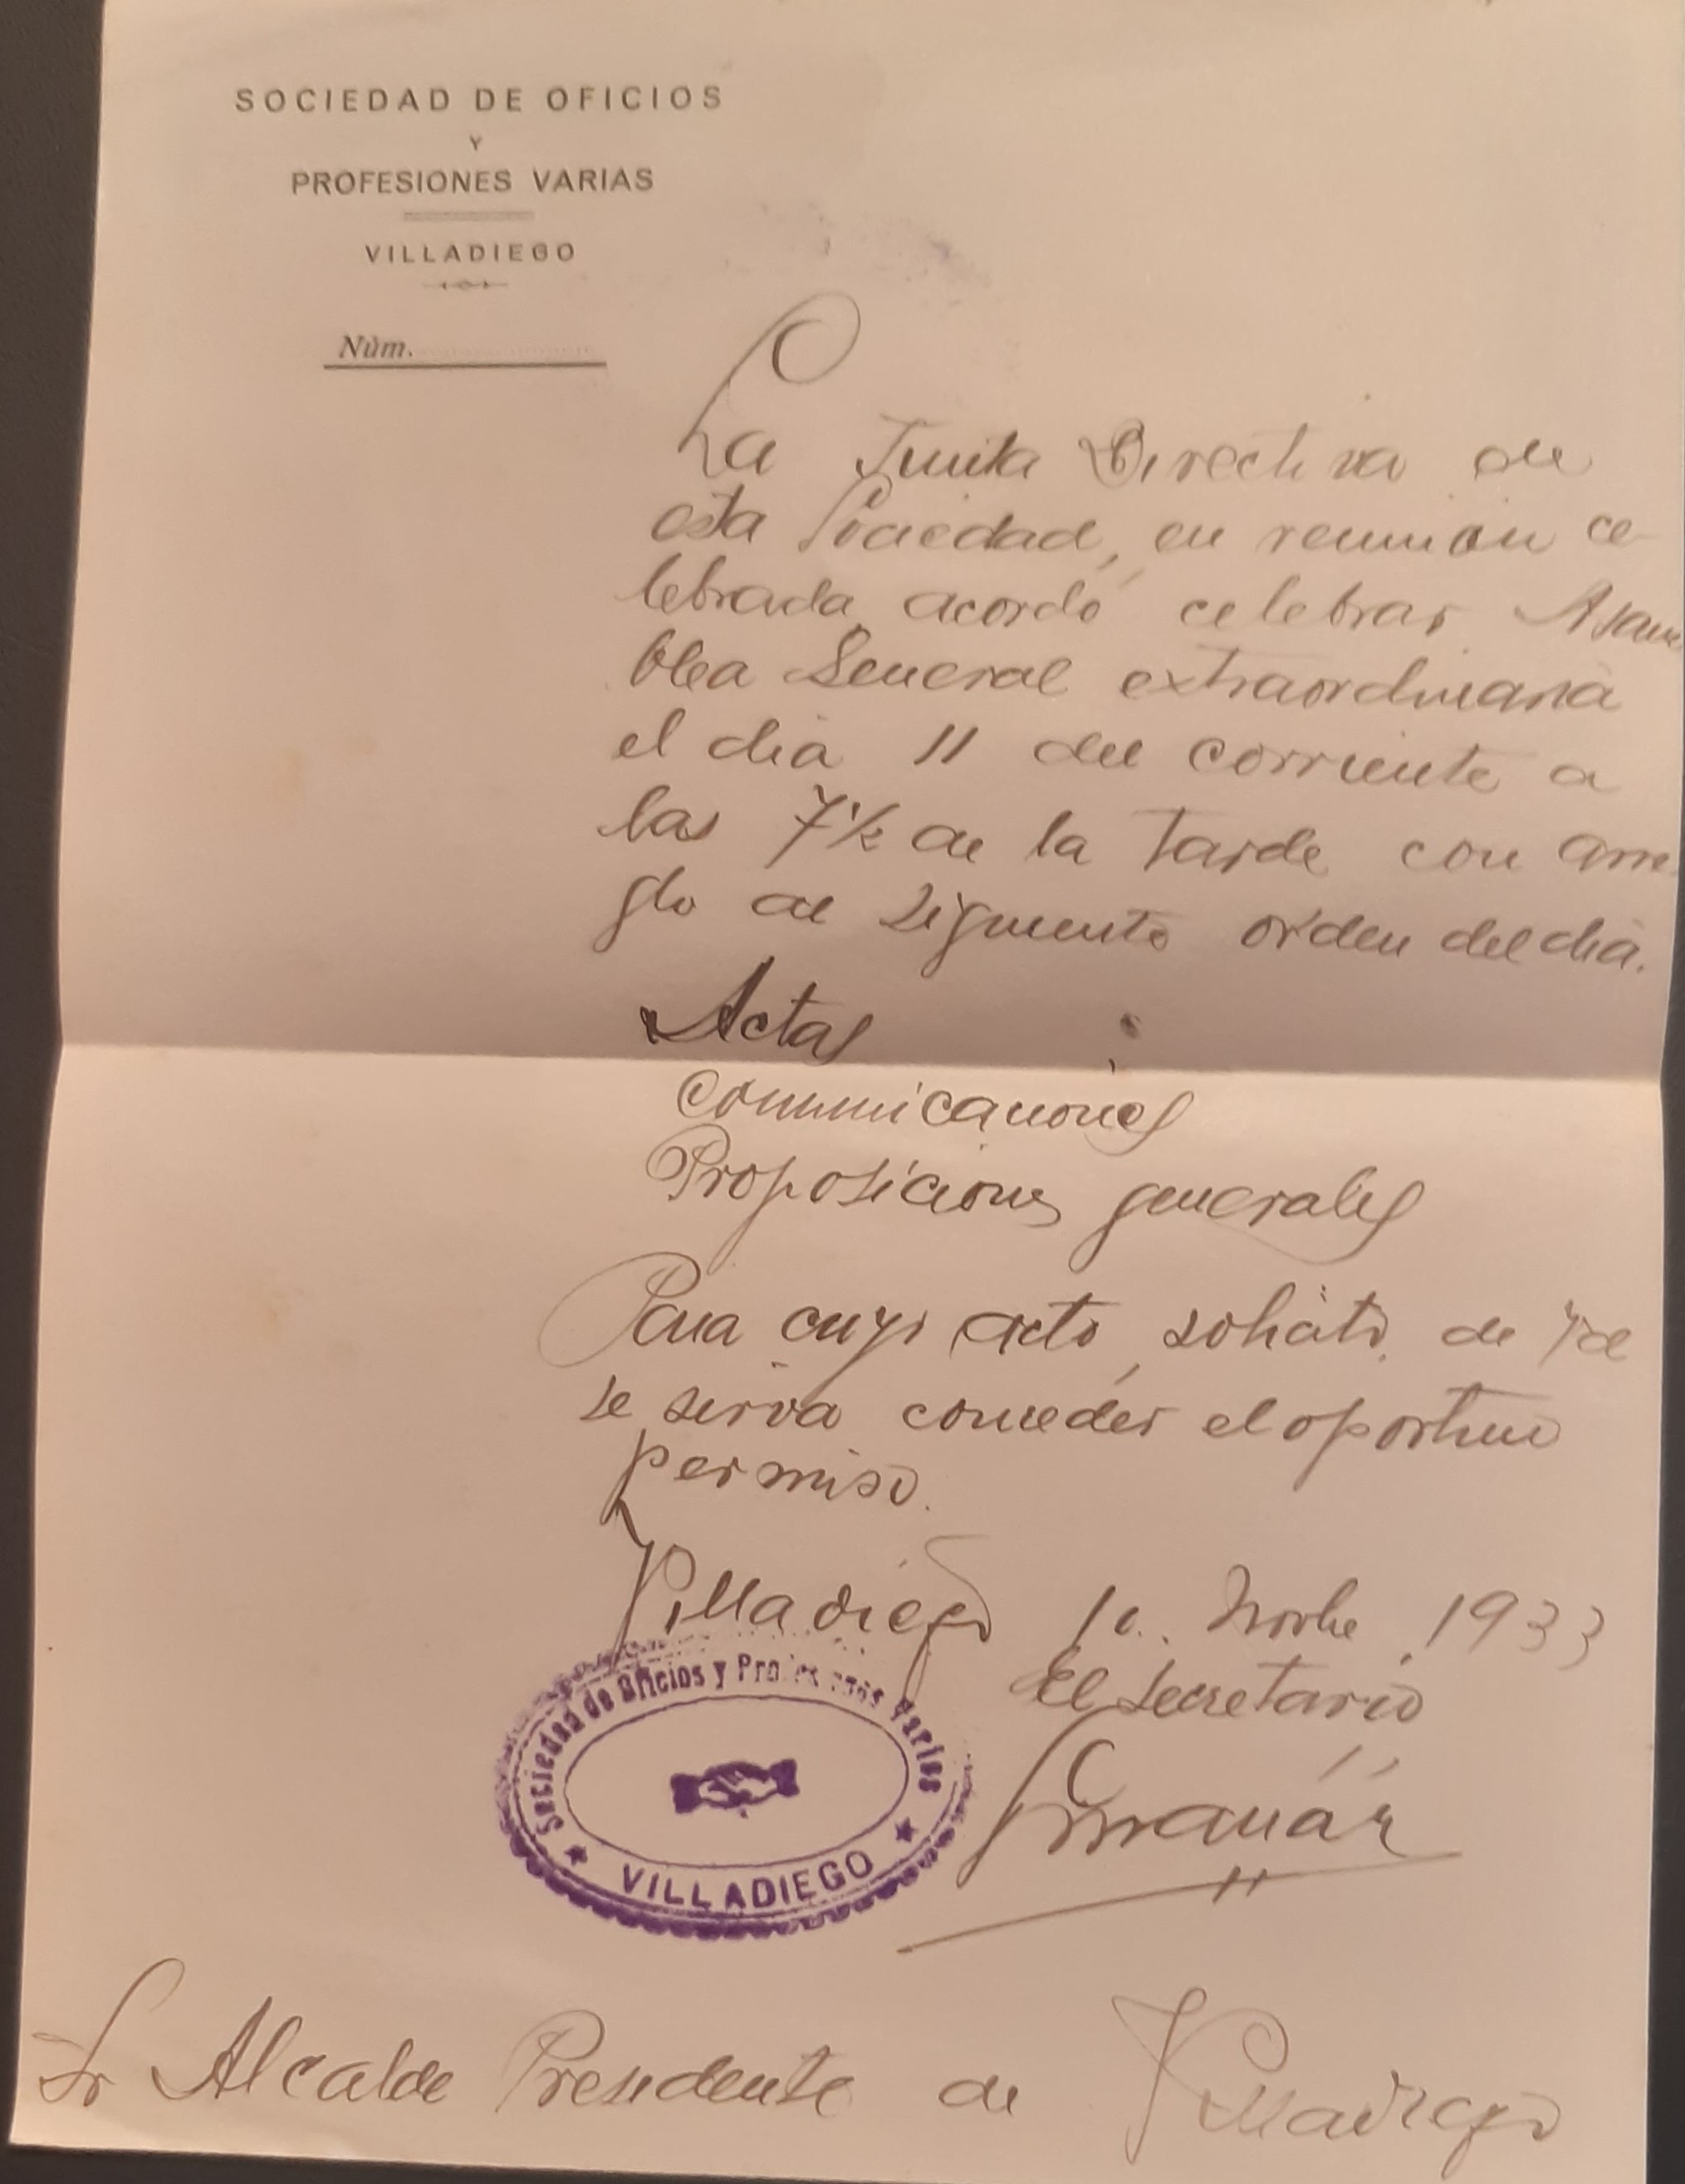 SOCIEDAD DE OFICIOS
Y
PROFESIONES VARIAS
VILLADIEGO
Núm.
La Junta Directiva de
esta Sociedad, en reunión ce-
lebrada, acordó, celebrar Asam
blea General extraordinaria
el dia 11 del corriente a
las 7½ de la tarde con arre
glo al siguiente orden del dia.
Actas
Comunicaciones
Proposiciones generales
Para cuyo acto, solicito, de
se sirva conceder el oportuno
permiso.
Villadiego 10. Novbe 1933
El Secretario
Sociedad de Oficios y Profesiones Varias
VILLADIEGO
Sr Alcalde Presidente de Villadiego